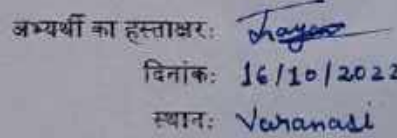 अभ्यर्थी का हस्ताक्षर:
दिनांक: 16/10/2022
स्थान: Varanasi